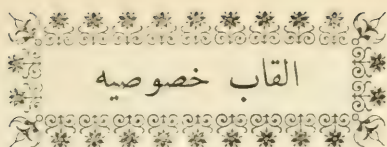 القاب خصوصيه